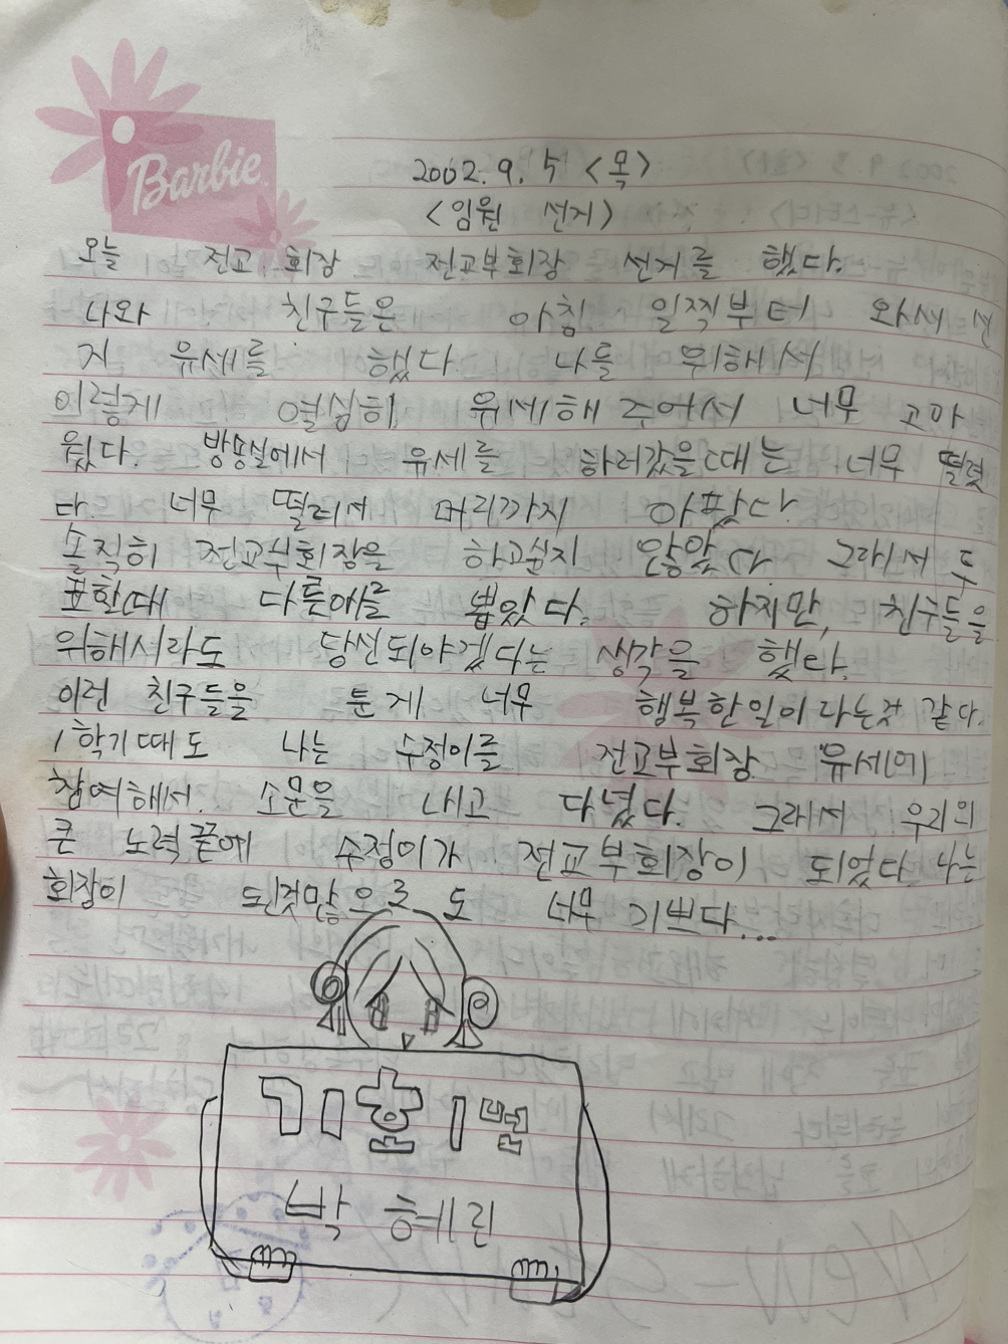 Barbie
2002. 9. 5 <목>
<임원 선거>
오늘 전교 회장 전교부회장 선거를 했다.
나와 친구들은 아침 일찍부터 와서 선
거 유세를 했다. 나를 위해서
이렇게 열심히 유세해 주어서 너무 고마
웠다. 방송실에서 유세를 하러갔을때는 너무 떨렸
다. 너무 떨려서 머리까지 아팠다.
솔직히 전교부회장을 하고싶지 않았다 그래서 투
표할때 다른애를 뽑았다. 하지만, 친구들을
위해서라도 당선되야겠다는 생각을 했다.
이런 친구들을 둔게 너무 행복한일이라는것 같다.
1학기때도 나는 수정이를 전교부회장 유세에
참여해서. 소문을 내고 다녔다. 그래서 우리의
큰 노력끝에 수정이가 전교부회장이 되었다. 나는
회장이 된것만으로도 너무 기쁘다...
기호 1번
박혜린